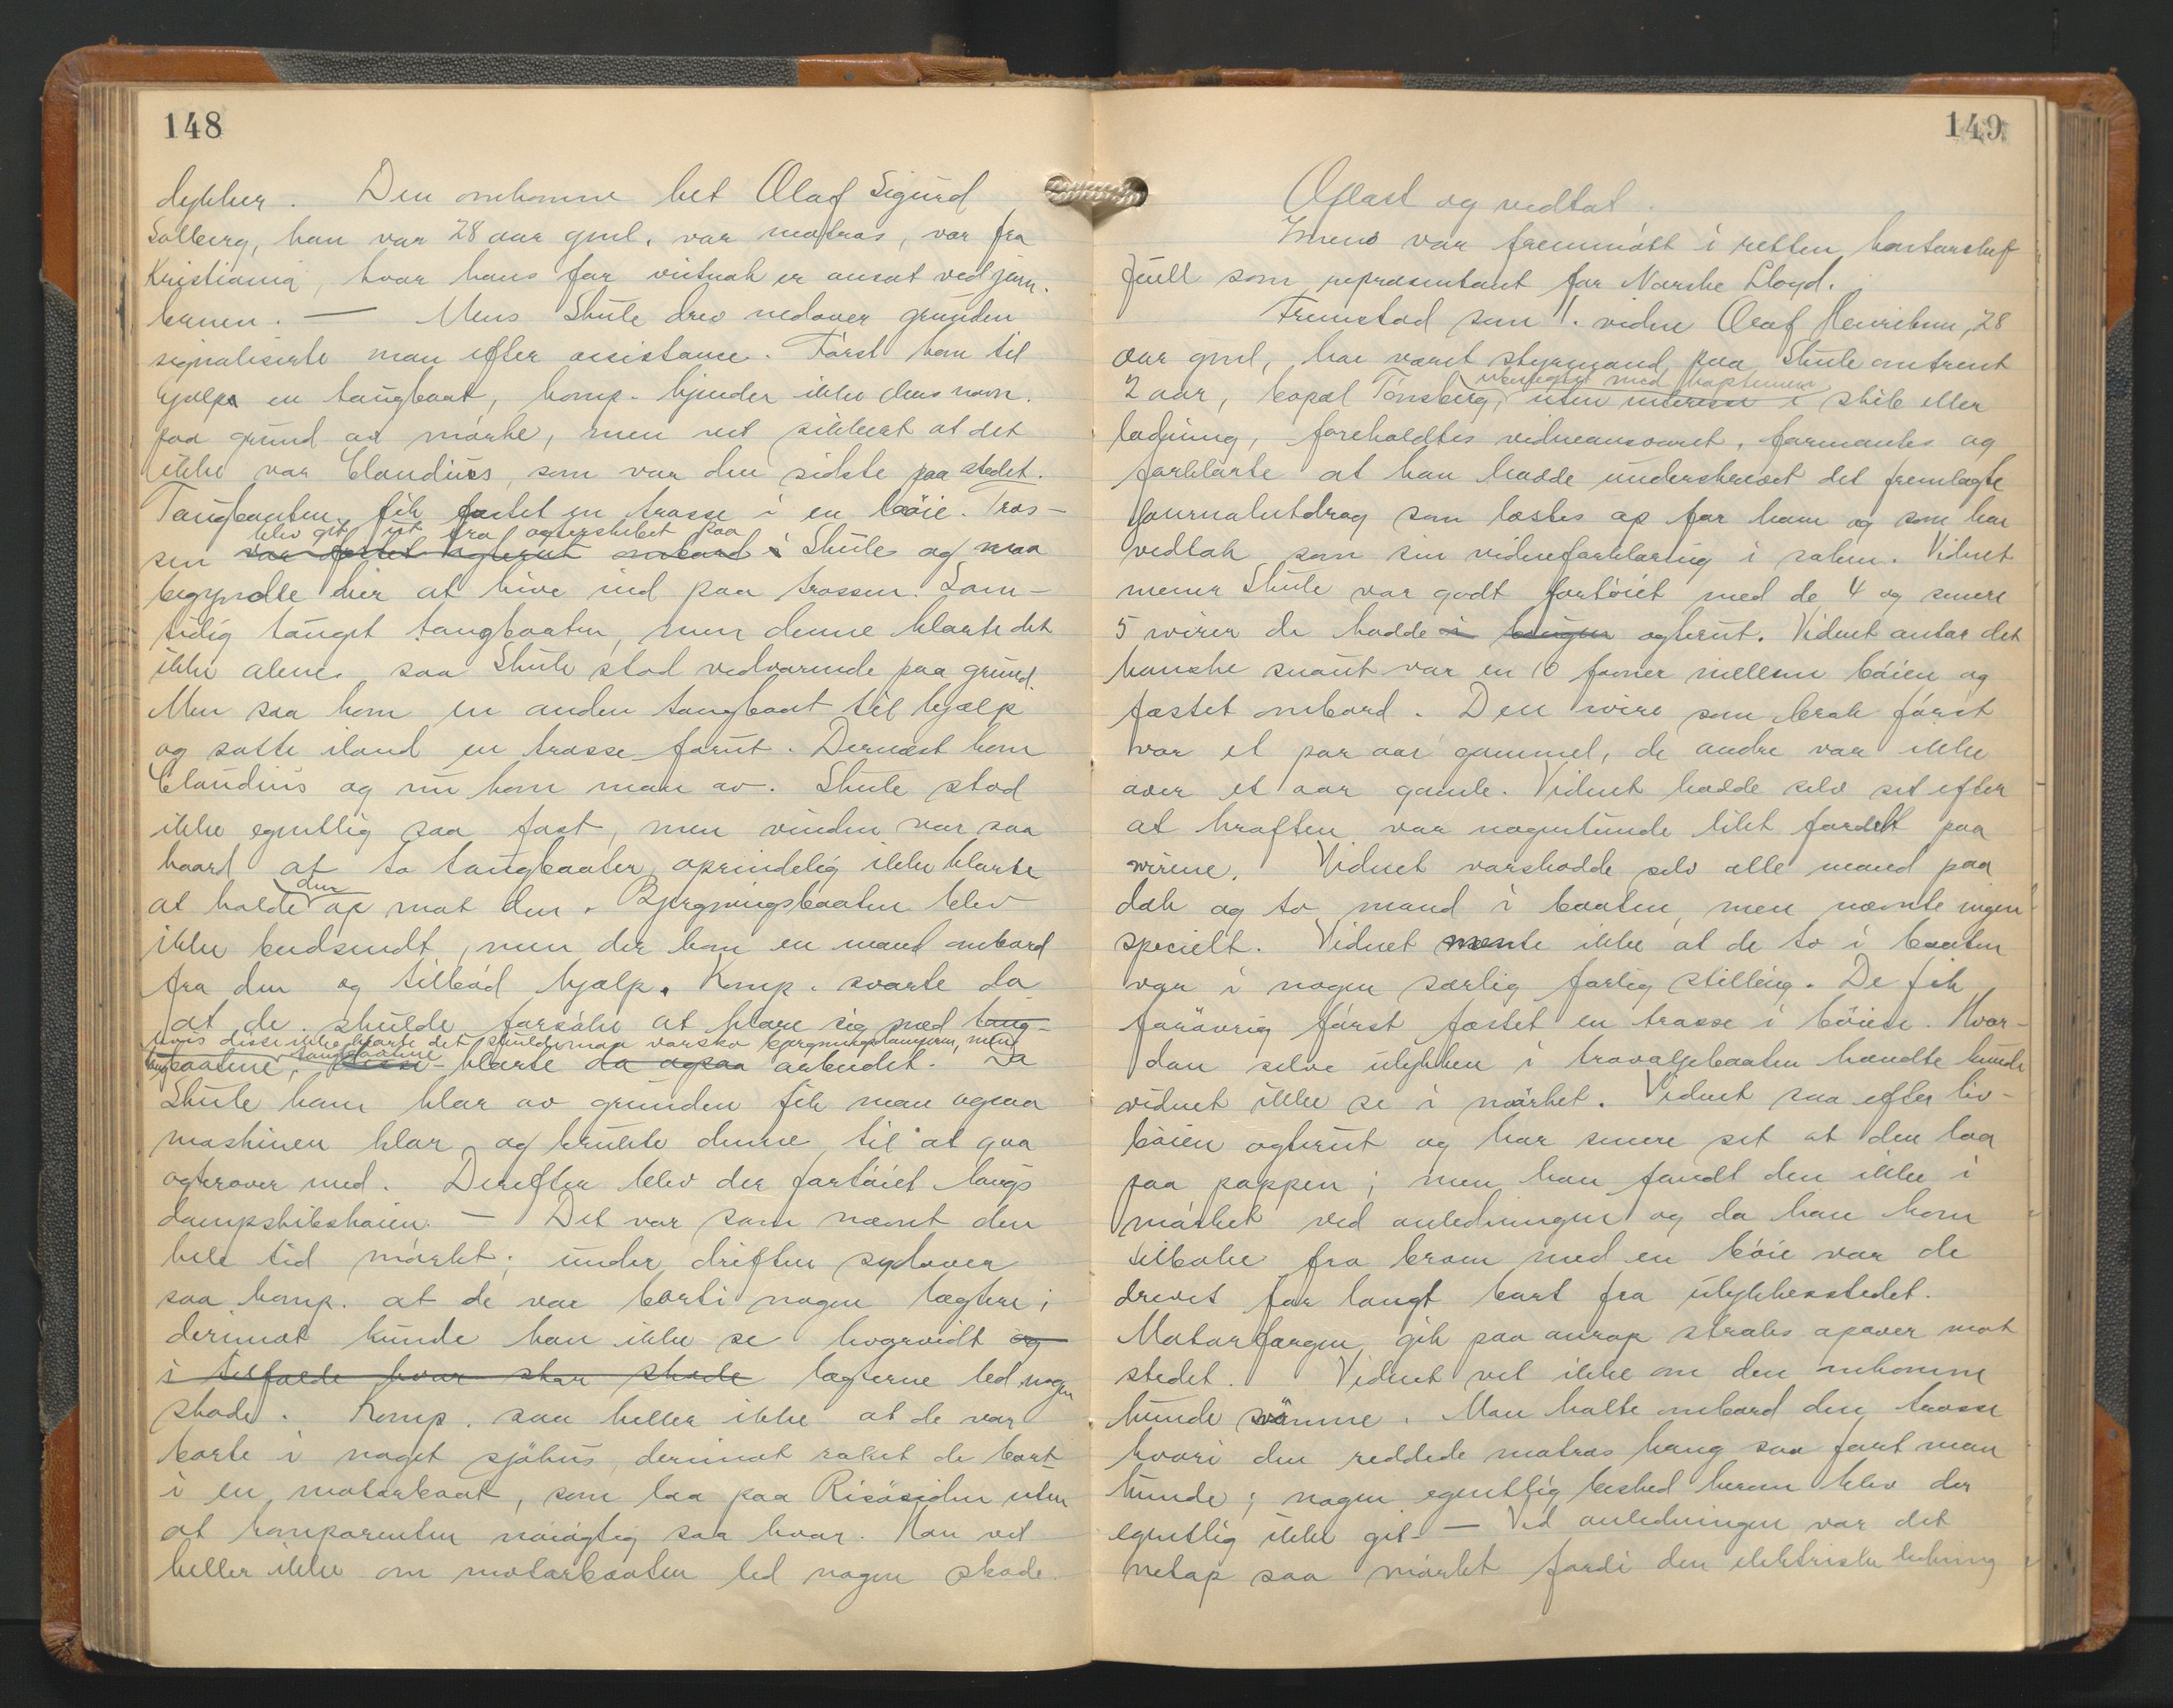 148
dykker. Den omkomne het Olaf Sigurd
Solberg, han var 28 aar gml., var matros, var fra
Kristiania, hvor hans far vistnok er ansat ved jern-
banen. — Mens Skule drev nedover grunden
signaliserte man efter assistance. Først kom til
hjelp en taugbaat, komp. kjender ikke dens navn.
paa grund av mørke, men vet sikkert at det
ikke var Claudius, som var den sidste paa stedet.
Taugbaaten fik fæstet en trosse i en bøie. Tros-
blev git ut fra agterskibet paa
sen var fæstet agterut ombord i Skule og man
begyndte der at hive ind paa trossen. Sam-
tidig tauget taugbaaten, men denne klarte det
ikke alene, saa Skule stod vedvarende paa grund.
Men saa kom en anden taugbaat til hjælp
og satte iland en trosse forut. Dernæst kom
Claudius og nu kom man av. Skule stod
ikke egentlig saa fast, men vinden var saa
haard at to taugbaater oprindelig ikke klarte
den
at holde op mot den. Bjergningsbaaten blev
ikke budsendt, men der kom en mand ombord
fra den og tilbød hjælp. Komp. svarte da
at de skulde forsøke at klare sig med taug-
hvis disse ikke klarte det skulde man varsko bjergningsdamperen, men
taugbaatene
baatene, disse klarte da ogsaa arbeidet. Da
Skule kom klar av grunden fik man ogsaa
maskinen klar og brukte denne til at gaa
agterover med. Derefter blev der fortøiet langs
dampskibskaien. — Det var som nævnt den
hele tid mørkt; under driften sydover
saa komp. at de var borti nogen lægtere;
derimot kunde han ikke se hvorvidt og
i tilfælde hvor stor skade lægterne led nogen
skade. Komp. saa heller ikke at de var
borte i noget sjøhus, derimot raket de bort
i en motorbaat, som laa paa Risøsiden uten
at komparenten nøiagtig saa hvor. Han vet
heller ikke om motorbaaten led nogen skade.
149
Oplæst og vedtat.
Imens var fremmøtt i retten kontorchef
Juell som repræsentant for Norske Lloyd.
Fremstod som 1. vidne Olaf Henriksen, 28
aar gml, har været styrmand paa Skule omtrent
ubeslegtet med kapteinen
2 aar, bopæl Tønsberg, uten interesse i skib eller
ladning, foreholdtes vidneansvaret, formantes og
forklarte at han hadde underskrevet det fremlagte
Journalutdrag som læstes op for ham og som han
vedtok som sin vidneforklaring i saken. Vidnet
mener Skule var godt fortøiet med de 4 og senere
5 wirer de hadde i baugen agterut. Vidnet antar det
kanske snaut var en 10 favner mellem bøien og
fæstet ombord. Den wire som brak først
var et par aar gammel, de andre var ikke
over et aar gamle. Vidnet hadde selv set efter
at kraften var nogenlunde likt fordelt paa
wirene. Vidnet varskodde selv alle mand paa
dæk og to mand i baaten, men nævnte ingen
specielt. Vidnet mente ikke at de to i baaten
var i nogen særlig farlig stilling. De fik
forøvrig først fæstet en trosse i bøien. Hvor-
dan selve ulykken i travaljebaaten hændte kunde
vidnet ikke se i mørket. Vidnet saa efter liv-
bøien agterut og har senere set at den laa
paa poppen; men han fandt den ikke i
mørket ved anledningen og da han kom
tilbake fra broen med en bøie var de
drevet for langt bort fra ulykkesstedet.
Motorfærgen gik paa anrop straks opover mot
stedet. Vidnet vet ikke om den omkomne
kunde svømme. Man halte ombord den trosse
hvori den reddede matros hang saa fort man
kunde; nogen egentlig besked herom blev der
egentlig ikke git. — Ved anledningen var det
netop saa mørkt fordi den elektriske ledning